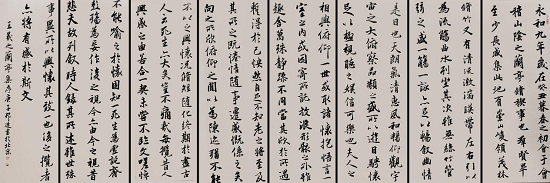 永和九年歲在癸丑暮春之初會于會
稽山陰之蘭亭脩禊事也群賢畢
至少長咸集此地有崇山峻領茂林
脩竹又有清流激湍暎帶左右引以
為流觴曲水列坐其次雖無絲竹管
弦之盛一觴一詠亦足以暢叙幽情
是日也天朗氣清惠風和暢仰觀宇
宙之大俯察品類之盛所以遊目騁懷
足以極視聽之娛信可樂也夫人之
相與俯仰一世或取諸懷抱悟言一
室之內或因寄所託放浪形骸之外雖
趣舍萬殊靜躁不同當其欣於所遇
暫得於己快然自足不知老之將至及
其所之既倦情隨事遷感慨係之矣
向之所欣俯仰之間以為陳迹猶不能
不以之興懷況脩短隨化終期於盡古
人云死生亦大矣豈不痛哉每攬昔人
興感之由若合一契未嘗不臨文嗟悼
不能喻之於懷固知死生為虛誕齊
彭殤為妄作後之視今亦由今之視昔
悲夫故列叙時人錄其所述雖世殊
事異所以興懷其致一也後之攬者
亦將有感於斯文
王羲之蘭亭集序庚子書於北京